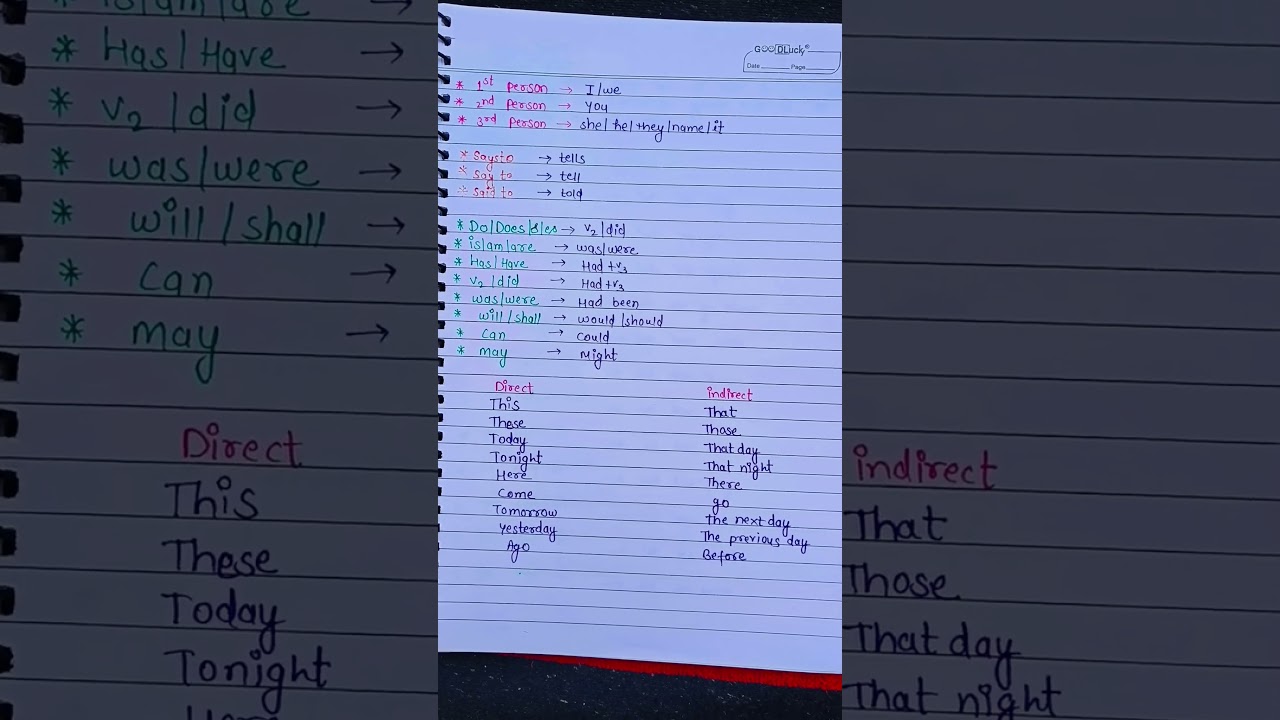 GOODLUCK®
Date Page
* 1st person → I/we
* 2nd person → you
* 3rd person → she/he/they/name/it
* Says to → tells
* Say to → tell
* Said to → told
* Do/Does/s/es → V2/did
* is/am/are → was/were
* Has/Have → Had+V3
* V2/did → Had+V3
* was/were → Had been
* will/shall → would/should
* can → could
* may → Might
Direct indirect
This That
These Those
Today That day
Tonight That night
Here There
Come go
Tomorrow The next day
Yesterday The previous day
Ago Before
is/am/are →
* Has/Have →
* V2/did →
* was/were →
* will/shall →
* can →
* may →
Direct
This
These
Today
Tonight
Here
indirect
That
Those
That day
That night